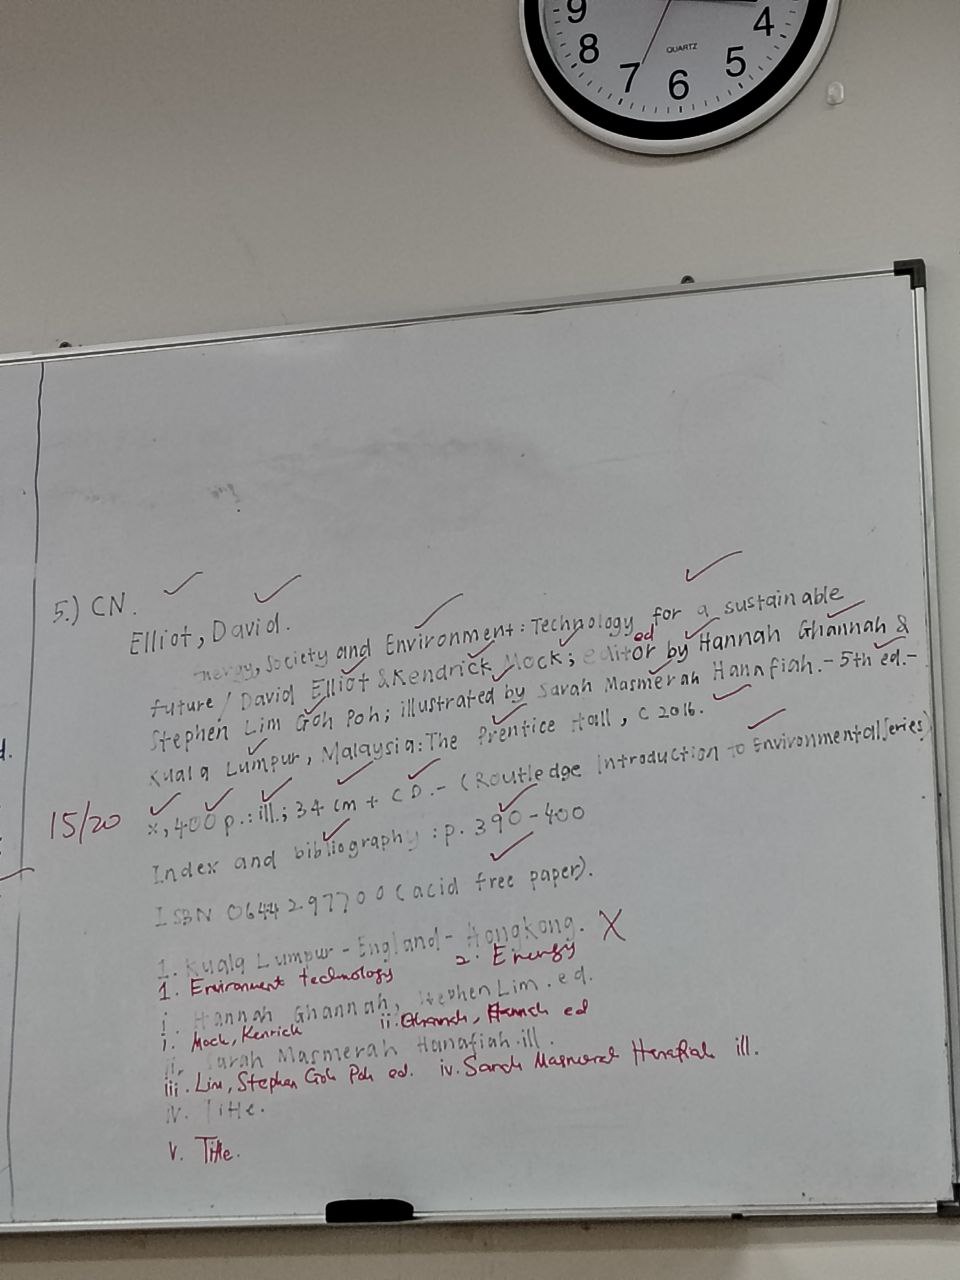 9
4
8
QUARTZ
5
7
6
5.) CN.
Elliot, David.
Energy, Society and Environment : Technology for a sustainable
ed
future / David Elliot & Kendrick Mock; editor by Hannah Ghannah &
Stephen Lim Goh Poh; illustrated by Sarah Masmerah Hanafiah. - 5th ed. -
Kuala Lumpur, Malaysia: The Prentice Hall, C 2016.
15/20
x, 400 p. : ill.; 34 cm + CD. - (Routledge Introduction to Environmental Series)
Index and bibliography : p. 390 - 400
ISBN 0644297700 (acid free paper).
1. Kuala Lumpur - England - Hongkong. X
1. Environment technology 2. Energy
i. Hannah Ghannah, Stephen Lim. ed.
i. Mock, Kenrick ii. Ghannah, Hannah ed
ii. Sarah Masmerah Hanafiah. ill.
iii. Lim, Stephen Goh Poh ed. iv. Sarah Masmerah Hanafiah ill.
iv. Title.
v. Title.